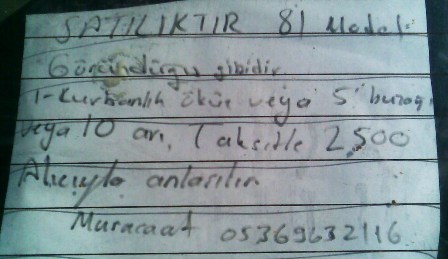 SATILIKTIR 81 Model
Göründüğü gibidir
1-Kurbanlık öküz veya 5 buzağ
veya 10 arı, Taksitle 2,500
Alıcıyla anlaşılır
Muracaat 05369632116